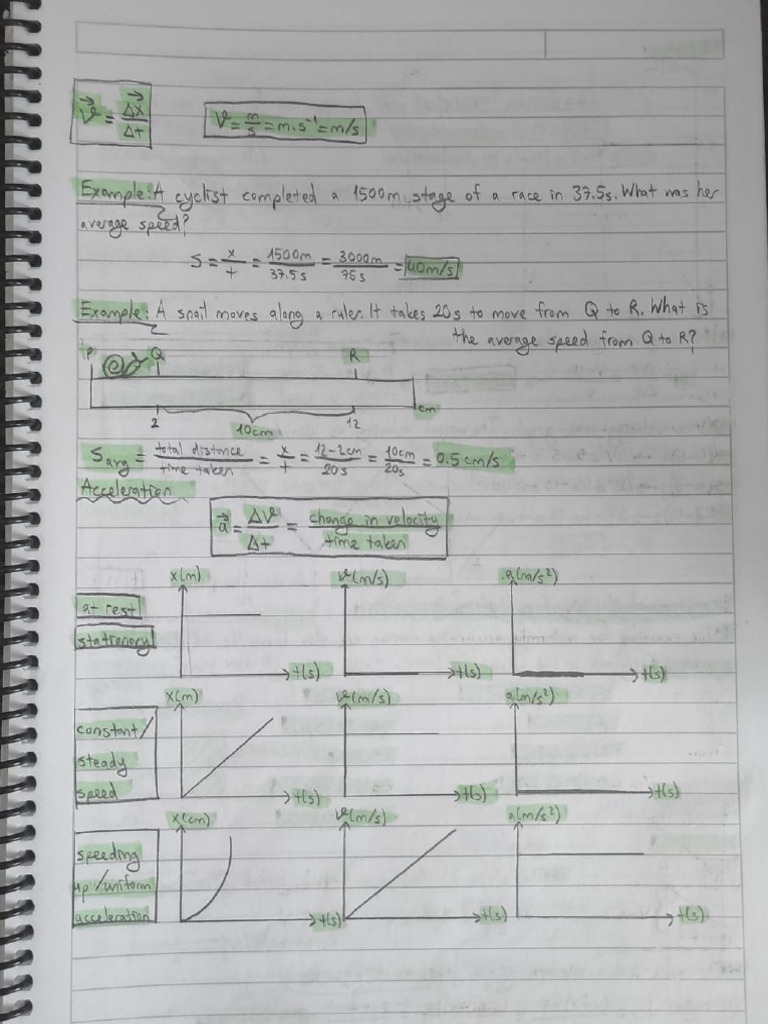 v⃗ = Δx⃗/Δt   V = m/s = m·s⁻¹ = m/s
Example: A cyclist completed a 1500m stage of a race in 37.5s. What was her
average speed?
S = x/t = 1500m/37.5s = 3000m/75s = 40m/s
Example: A snail moves along a ruler. It takes 20s to move from Q to R. What is
the average speed from Q to R?
P Q R
cm
2 12
10cm
Savg = total distance/time taken = x/t = 12-2cm/20s = 10cm/20s = 0.5 cm/s
Acceleration
a⃗ = Δv/Δt = change in velocity/time taken
x(m) v(m/s) a(m/s²)
at rest
stationary
t(s) t(s) t(s)
x(m) v(m/s) a(m/s²)
constant/
steady
speed t(s) t(s) t(s)
x(cm) v(m/s) a(m/s²)
speeding
up/uniform
acceleration t(s) t(s) t(s)